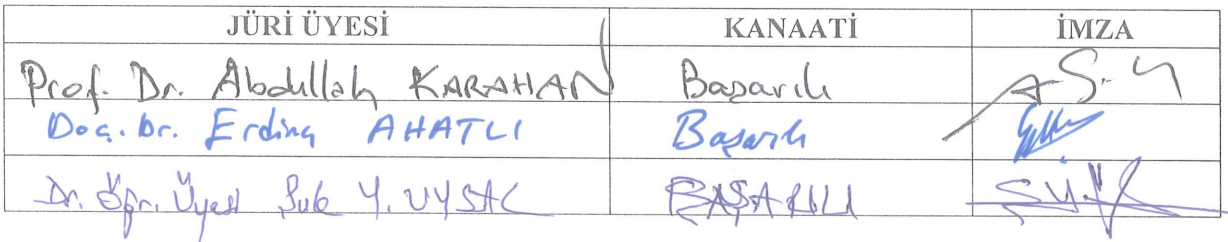 JÜRİ ÜYESİ KANAATİ İMZA
Prof. Dr. Abdullah KARAHAN Başarılı
Doç. Dr. Erdinç AHATLI Başarılı
Dr. Öğr. Üyesi Y. UYSAL BAŞARILI